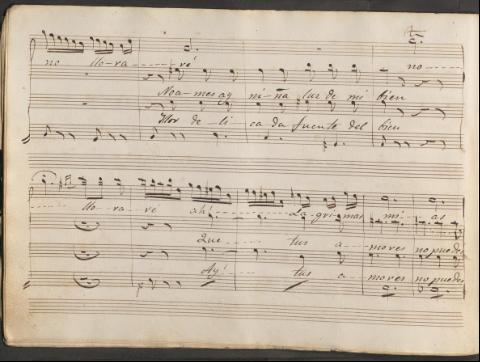 no llo-ra----ré no----
No a-mes ay ni-ña luz de mi bien
Flor de-li ca da fuente del bien
---- llo-ra-ré ah!---------La-gri-mas mi-as
Que---- tus a-mores no puede
Ay!---- tus a-mores no puedes